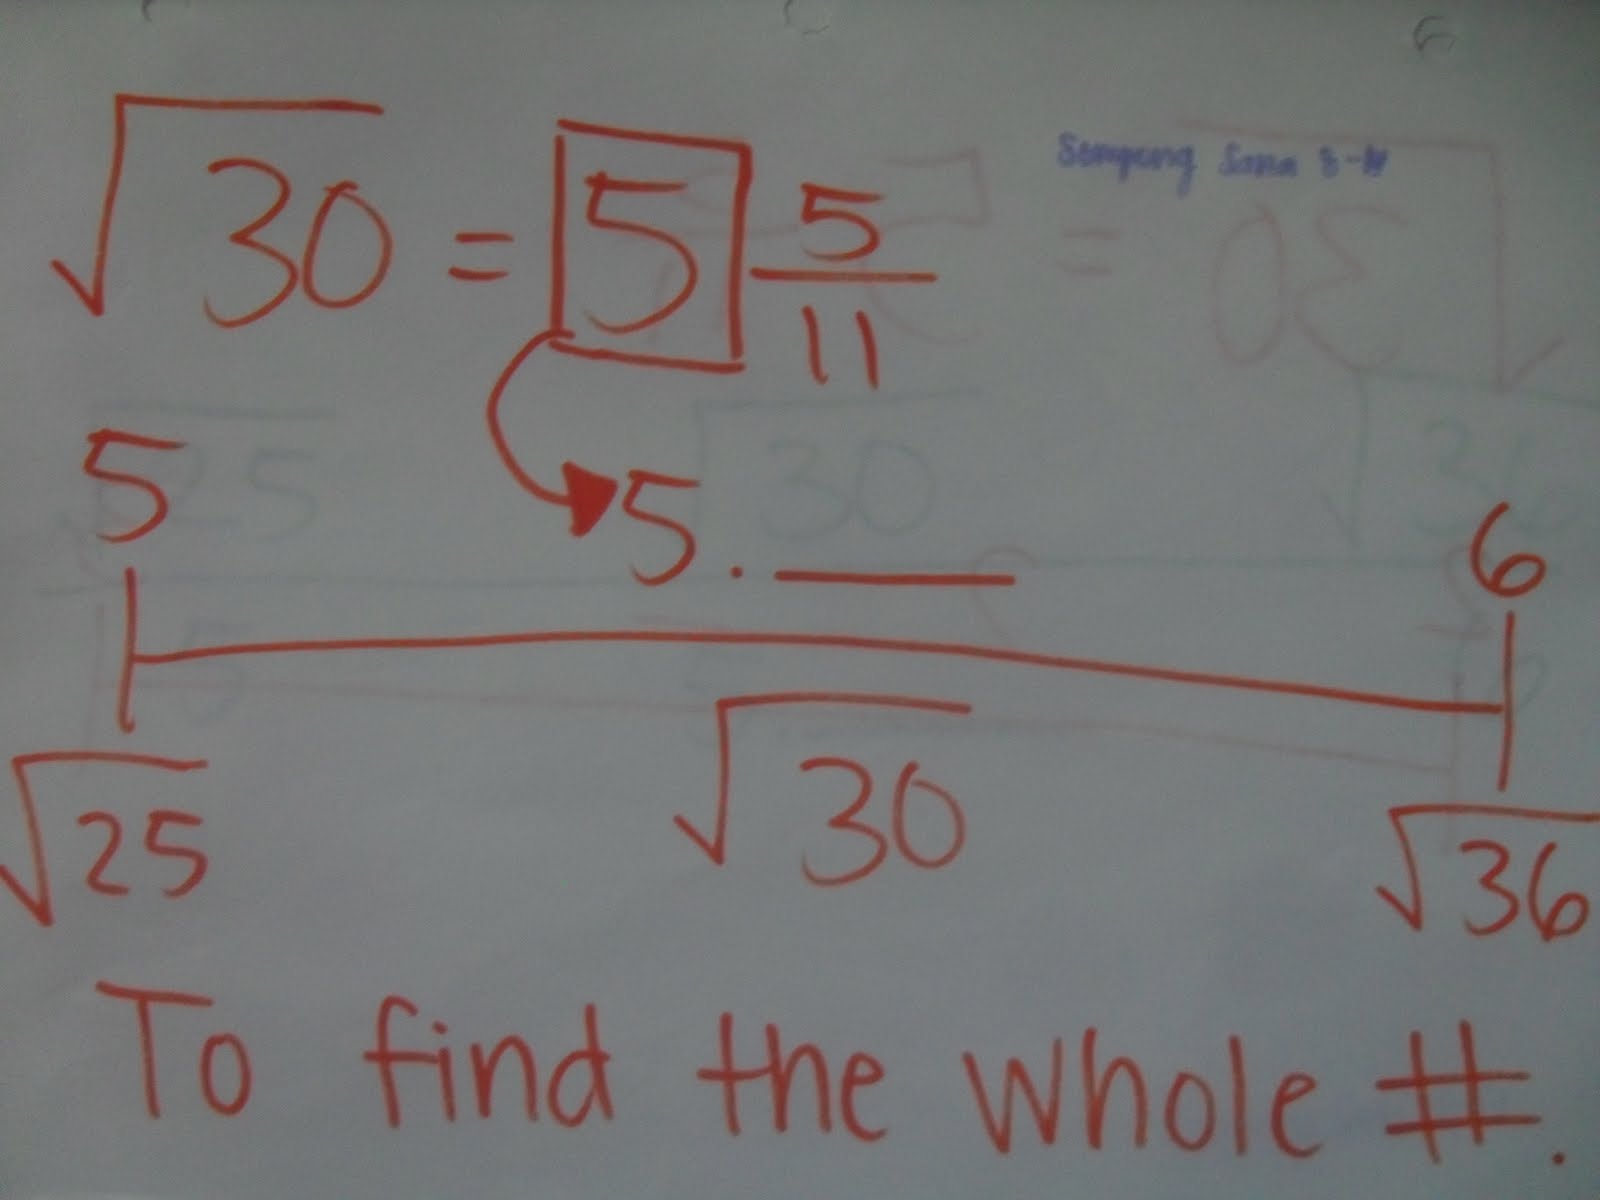 √30 = 5 5/11
Sempeng Sana 8-
5
5.___
6
√25
√30
√36
To find the whole #.